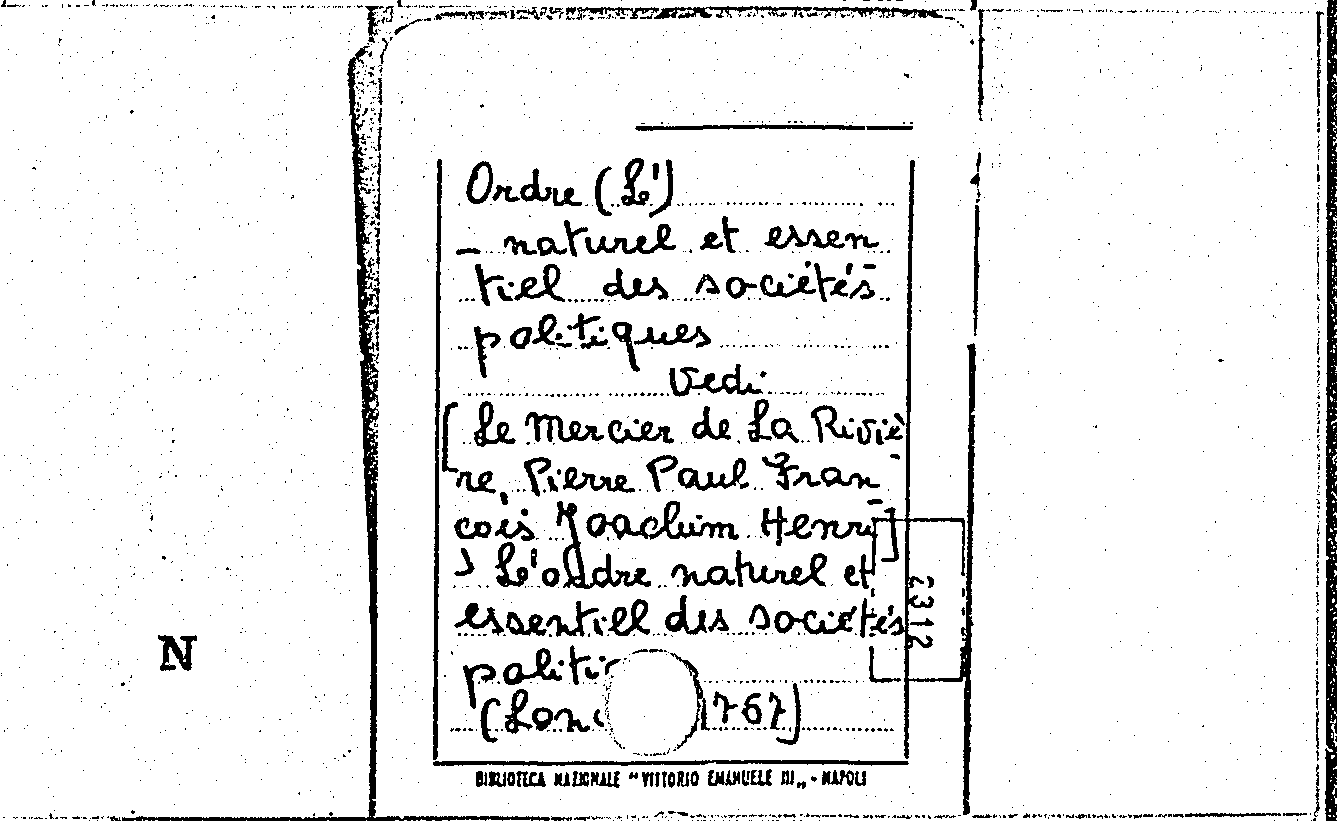 Ordre (L')
– naturel et essen-
tiel des sociétés
politiques
Vedi
[Le Mercier de La Riviè-
re, Pierre Paul Fran-
cois Joachim Henri]
L'ordre naturel et
essentiel des sociétés
(1767)
2312
N
BIBLIOTECA NAZIONALE "VITTORIO EMANUELE III„ - NAPOLI